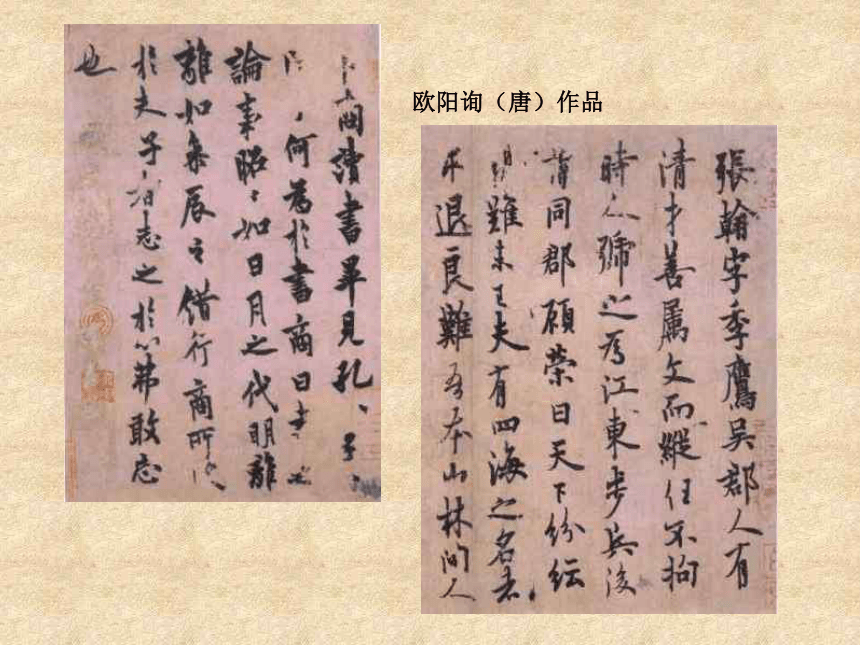 欧阳询（唐）作品
卜商讀書畢見孔、子、
何為於書商曰書之
論事昭、如日月之代明離
離如參辰之錯行商所
於夫子者志之於心弗敢忘
也
張翰字季鷹吳郡人有
清才善属文而縱任不拘
時人號之為江東步兵後
謂同郡顧榮曰天下紛紜
難未已夫有四海之名者
求退良難吾本山林間人